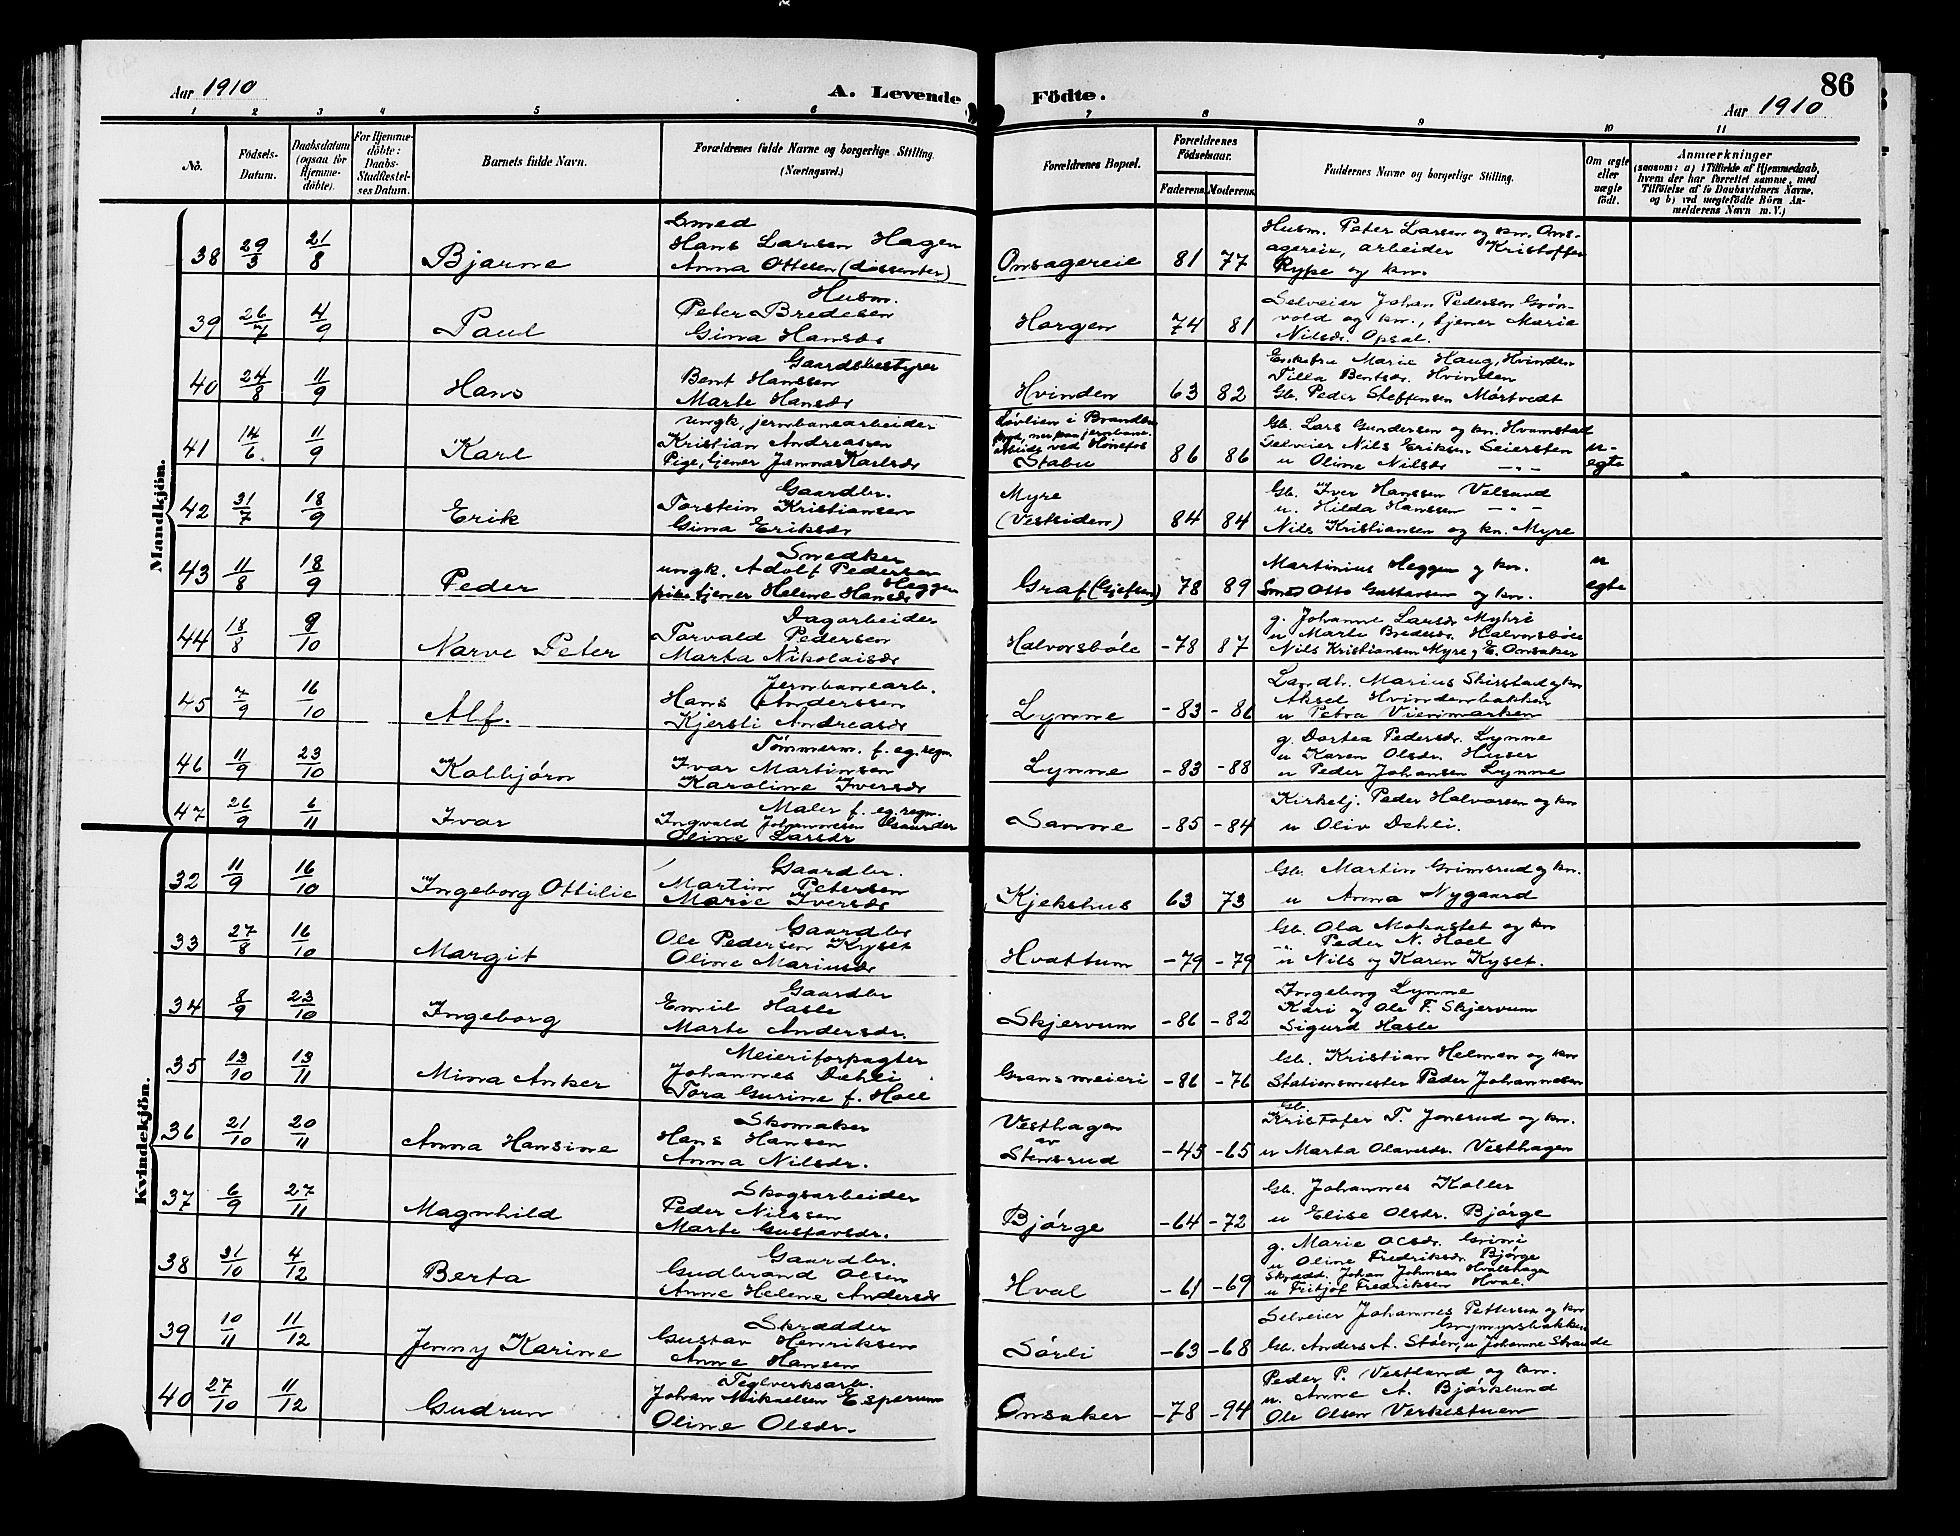 86
Aar 1910
A. Levende
Födte.
Aar 1910
1 2 3 4 5 6 7 8 9 10 11
No.
Födsels-
Datum.
Daabsdatum
(ogsaa for
Hjemme-
döbte).
For Hjemme-
döbte:
Daabs-
Stadfæstel-
ses Datum.
Barnets fulde Navn.
Forældrenes fulde Navne og borgerlige Stilling.
(Næringsvei.)
Forældrenes Bopæl.
Forældrenes
Födselsaar.
Faderens. Moderens.
Faddernes Navne og borgerlige Stilling.
Om ægte
eller
uægte
födt.
Anmærkninger
(saasom: a) i Tilfælde af Hjemmedaab,
hvem der har forrettet samme, med
Tilföielse af to Daabsvidners Navne,
og b) ved uægtefödte Börn An-
melderens Navn m. V.)
Mandkjön.
38 29/3 21/8 Bjarne
Smed
Hans Larsen Hagen
Anna Ottesen (dissenter)
Onsagereie 81 77
Husm. Peter Larsen og kn. Ons-
agereie, arbeider Kristoffer
Rype og kn.
39 26/7 4/9 Paul
Husm.
Peter Bredesen
Gina Hansdr
Horgen 74 81
Selveier Johan Pedersen Grøn-
vold og kn., tjener Marie
Nilsdr. Opsal.
40 24/8 11/9 Hans
Gaardsbestyrer
Bent Hanssen
Marte Hansdr
Hvinden 63 82
Enkefru Marie Haug, Hvinden
Tilla Bentsdr. Hvinden
Gb. Peder Steffensen Mørtvedt
41 14/6 11/9 Karl
ungk. jernbanearbeider
Kristian Andreassen
Pige, tjener Jenna Karlsdr
Løvlien i Brandbu
ved Hønefos
Stabu 86 86
Gb. Lars Gundersen og kn. Hvamstad
Selveier Nils Eriksen Seiersten
u Oline Nilsdr —"—
u-
egte
42 31/7 18/9 Erik
Gaardbr.
Torstein Kristiansen
Gina Eriksdr
Myre
(Vestsiden) 84 84
Gb. Iver Hanssen Velsand
u. Hilda Hanssen —"—
Nils Kristiansen og kn. Myre
43 11/8 18/9 Peder
Snedker
ungk. Adolf Pedersen
Heggen
pike tjener Helene Hansdr
Graf (Gjefsen) 78 89
Martinius Heggen og kn.
Smed Otto Gustavsen og kn.
u
egte
44 18/8 9/10 Narve Peter
Dagarbeider
Torvald Pedersen
Marta Nikolaisdr
Halvorsbøle -78 87
g. Johanne Larsdr Myhre
u Marte Bredesdr. Halvorsbøle
Nils Kristiansen Myre, E. Onsaker
45 7/9 16/10 Alf.
Jernbanearb.
Hans Anderssen
Kjersti Andreasdr
Lynne -83 -86
Landh. Marius Skirstad og kn
Aksel Hvindenbakken
u Petra Vienmarken
46 11/9 23/10 Kolbjørn
Tømmerm. f. eg. regn
Ivar Martinsen
Karoline Iversdr
Lynne -83 -88
g. Dortea Pedersdr. Lynne
u Karen Olsdr. Huser
u Peder Johansen Lynne
47 26/9 6/11 Ivar
Maler f. eg. regn.
Ingvald Johannesen
Oline Larsdr
Sanne -85 -84
Kirketj. Peder Halvorsen og kn
u Oliv Dehli.
Kvindekjön.
32 11/9 16/10 Ingeborg Ottilie
Gaardbr.
Martin Petersen
Marie Iversdr
Kjekshus 63 73
Gb. Martin Grimsrud og kn.
u Anna Nygaard
33 27/8 16/10 Margit
Gaardbr
Ole Pedersen Kyset
Oline Mariusdr
Hvattum -79 -79
Gb. Ola Mohagstet og kn
" Peder N. Hoel
u Nils og Karen Kyset.
34 8/9 23/10 Ingeborg
Gaardbr
Emil Hasle
Marte Andersdr.
Skjervum -86 -82
Ingeborg Lynne
Kari og Ole F. Skjervum
Sigurd Hasle
35 13/10 13/11 Mina Anker
Meieriforpagter
Johannes Dehli
Tora Gurine f. Hoel
Gransmeieri -86 -76
Gb. Kristian Helmen og kn
Stationsmester Peder Johannesen
36 21/10 20/11 Anna Hansine
Skomaker
Hans Hansen
Anna Nilsdr.
Vesthagen
av
Stensrud -45 -65
Gb.
Kristofer T. Jensrud og kn.
u Marta Olavesdr. Vesthagen
37 6/9 27/11 Magnhild
Skogsarbeider
Peder Nilssen
Marte Gustavsdr.
Bjørge -64 -72
Gb. Johannes Koller
u Elise Olsdr. Bjørge
38 31/10 4/12 Berta
Gaardbr.
Gudbrand Olsen
Anne Helene Andersdr
Hval -61 -69
g. Marie Olsdr. Grini
u Oline Fredriksdr. Bjørge
Skrædd. Johan Johnsen Hvalshagen
u Fritjof Fredriksen Hval.
39 10/11 11/12 Jenny Karine
Skrædder
Gustav Henriksen
Anne Hansen
Sørli -63 -68
Selveier Johannes Pettersen og kn
Gb. Anders A. Støen, u Johanne Strande
40 27/10 11/12 Gudrun
Teglverksarb.
Johan Mikaelsen Esperum
Oline Olsdr.
Onsaker -78 -94
Peder P. Vestland og kn.
u. Anne A. Bjørklund
Ole Olsen Verkestuen